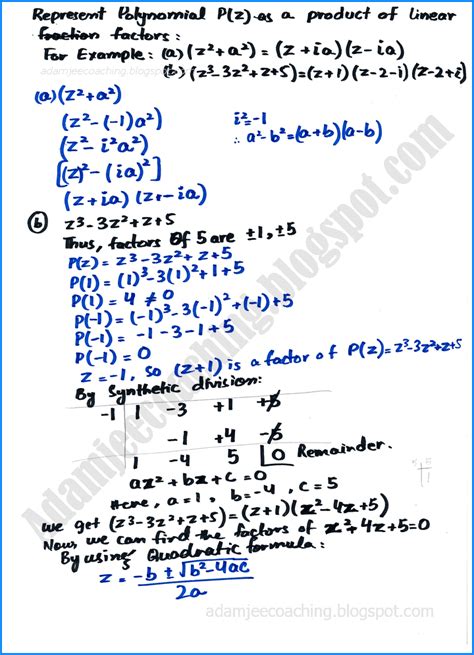 Represent Polynomial P(z) as a product of linear
fraction factors :
For Example : (a) (z²+a²) = (z+ia)(z-ia)
adamjeecoaching.blogspot.com
(b) (z³-3z²+z+5)=(z+1)(z-2-i)(z-2+i)
(a) (z²+a²)
(z²-(-1)a²)
i²=-1
(z²-i²a²)
∴ a²-b²=(a+b)(a-b)
[(z)²-(ia)²]
(z+ia) (z-ia)
(b) z³-3z²+z+5
Thus, factors of 5 are ±1, ±5
P(z) = z³-3z²+z+5
P(1) = (1)³-3(1)²+1+5
P(1) = 4 ≠ 0
P(-1) = (-1)³-3(-1)²+(-1)+5
P(-1) = -1-3-1+5
P(-1) = 0
z = -1, so (z+1) is a factor of P(z)=z³-3z²+z+5
By Synthetic division:
-1 | 1 -3 +1 +5
-1 +4 -5
1 -4 5 | 0 Remainder.
ax²+bx+c=0
Here, a=1, b=-4, c=5
we get (z³-3z²+z+5)=(z+1)(x²-4x+5)
Now, we can find the factors of x²-4z+5=0
By using Quadratic formula:
z = -b ± √b²-4ac
2a
adamjeecoaching.blogspot.com
Adamjeecoaching.blogspot.com